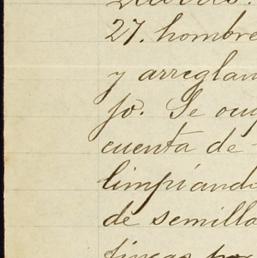 27. hombre
y arreglan
jo. Se ocu
cuenta de
limpiando
de semilla
fincas por